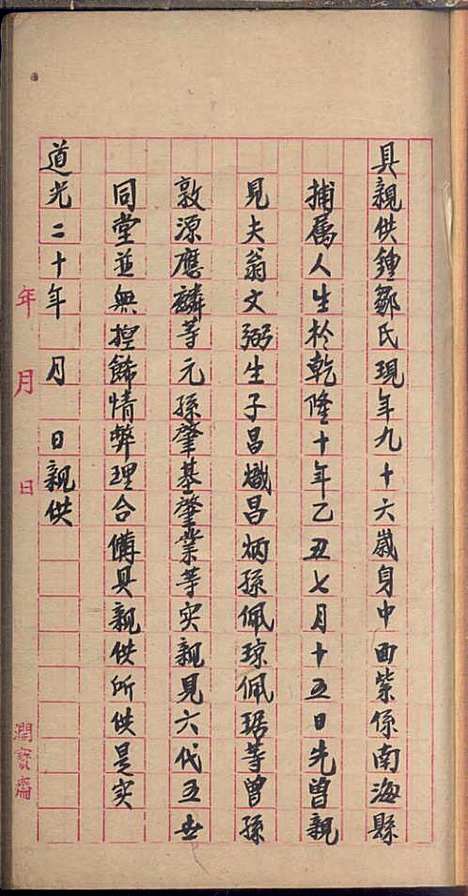 具親供鍾鄒氏現年九十六歲身中面紫係南海縣
捕属人生於乾隆十年乙丑七月十五日先曾親
見夫翁文弼生子昌熾昌炳孫佩琼佩琚等曾孫
敦源應麟等元孫肇基肇業等实親見六代五世
同堂並無捏餙情弊理合俻具親供所供是实
道光二十年 月 日親供
年 月 日
潤寶齋